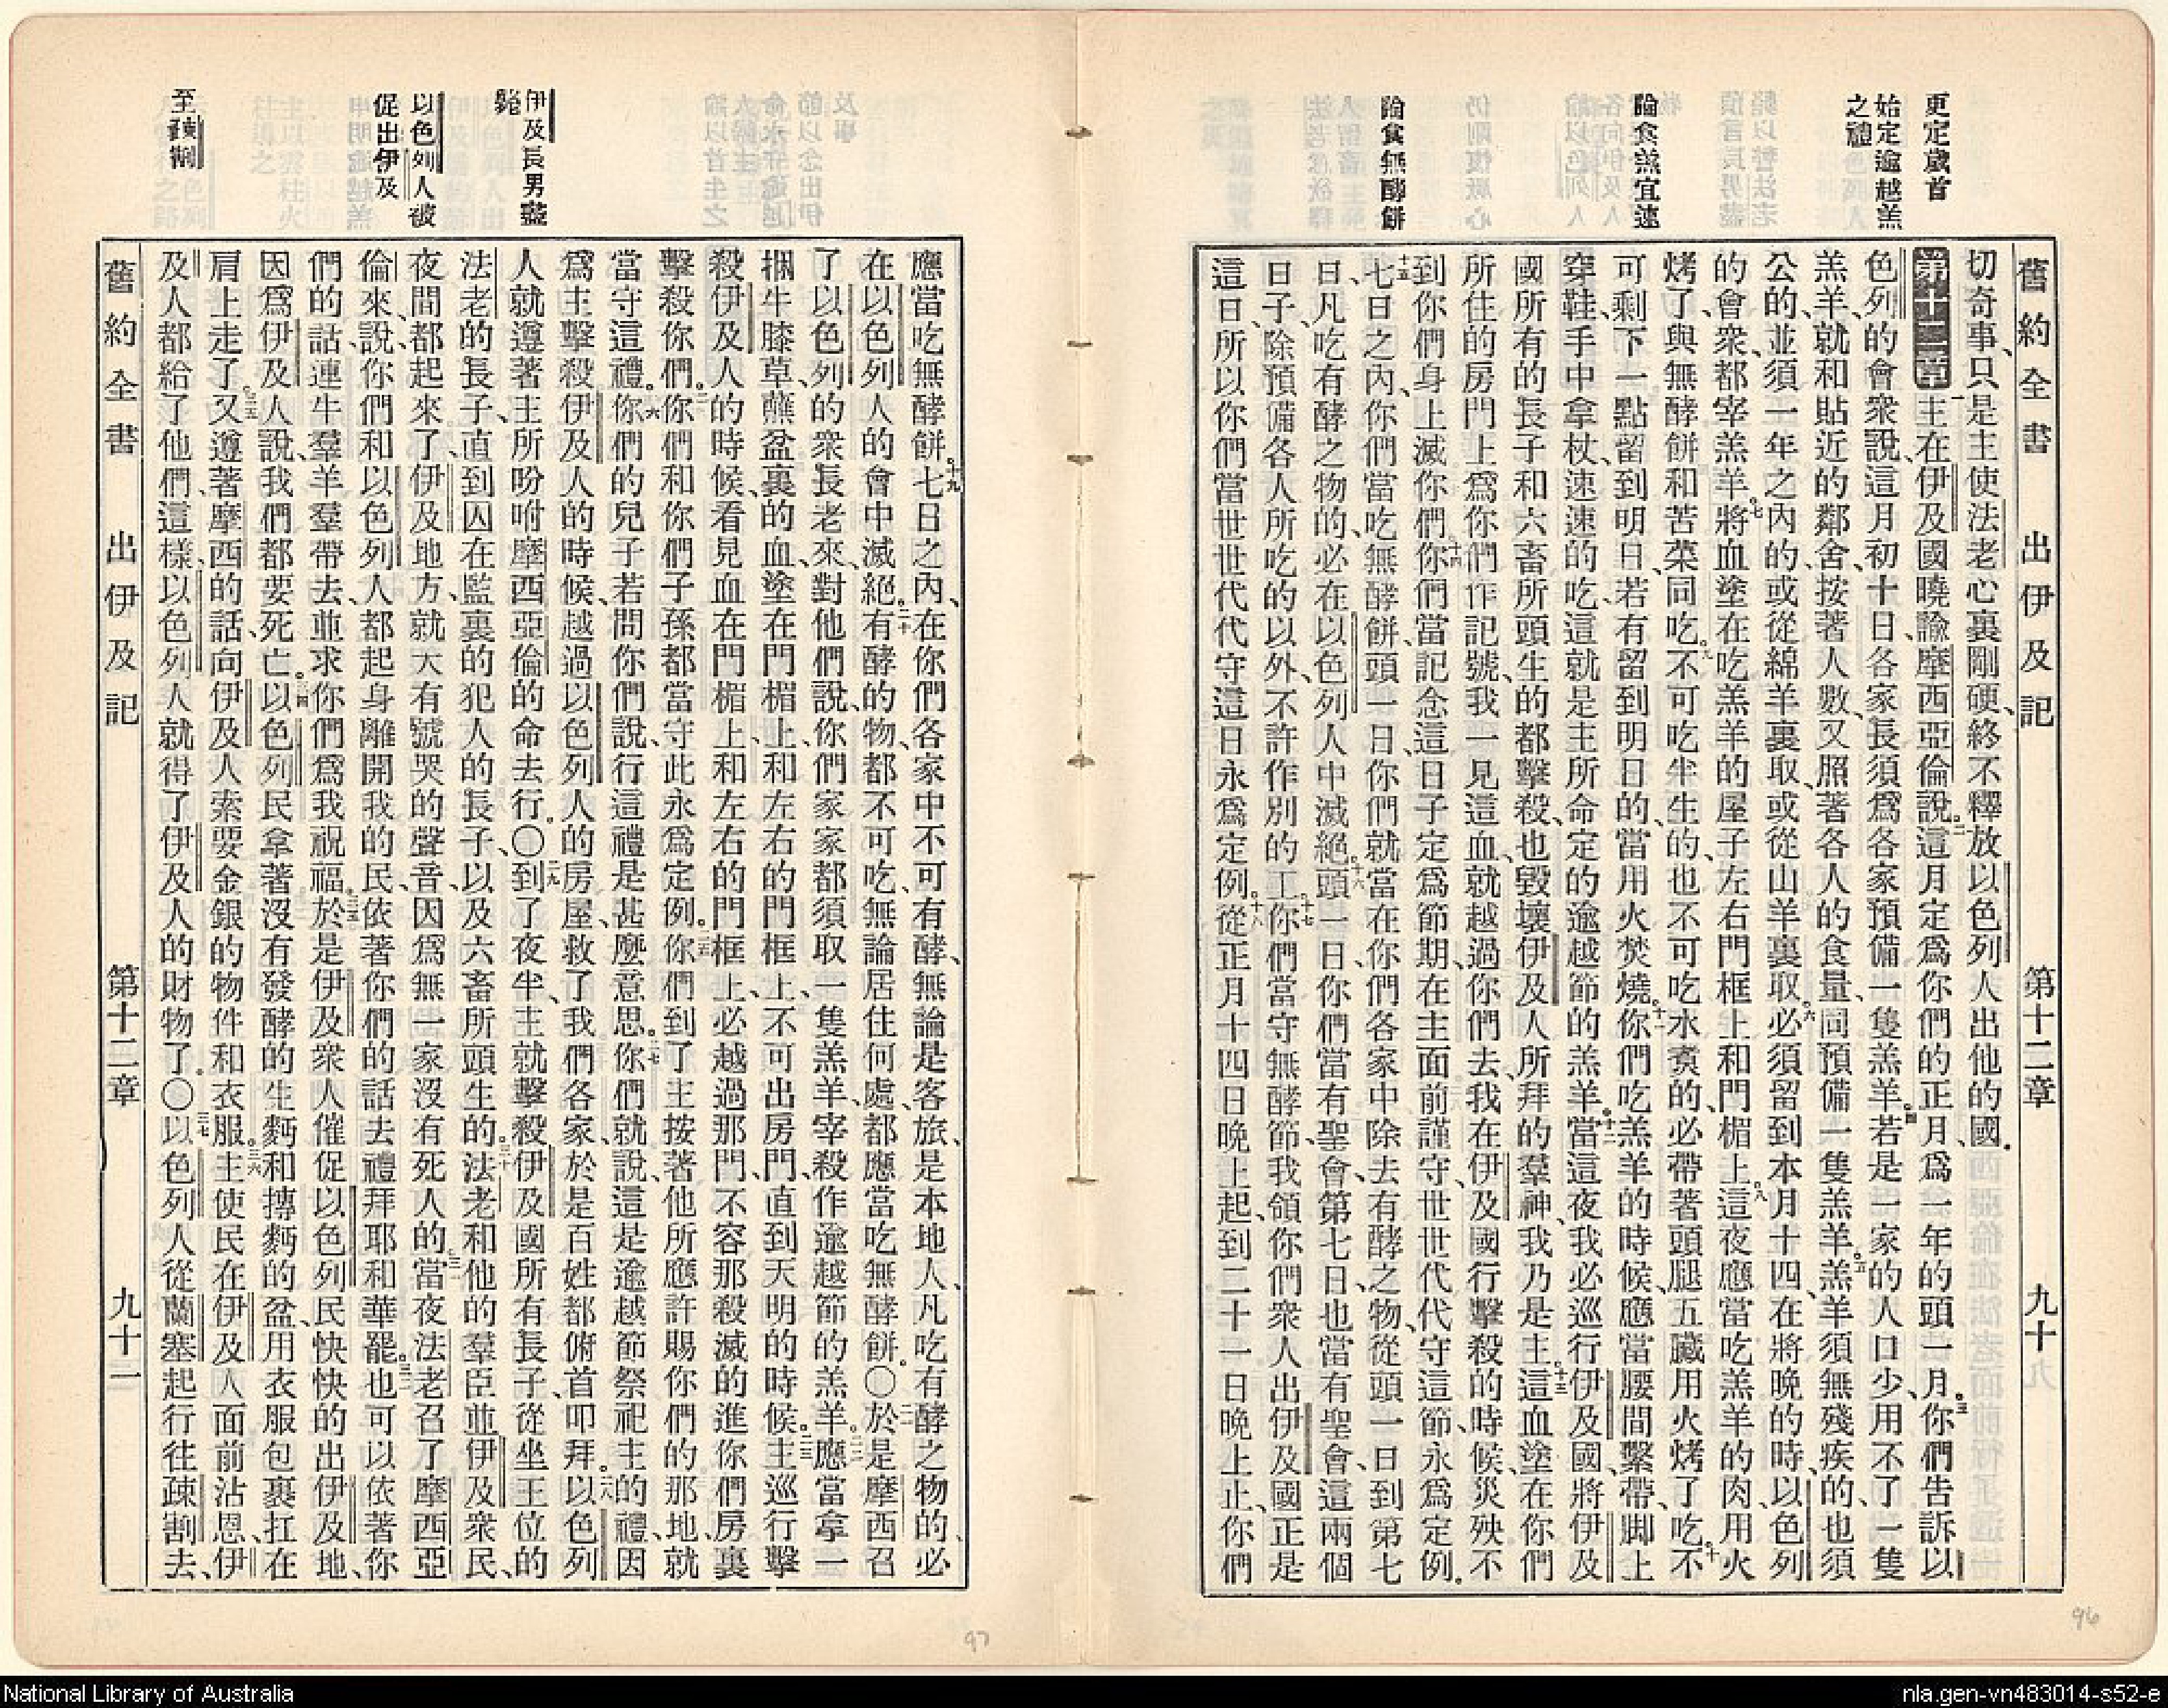 更定歲首
始定逾越羔
之禮
論食羔宜速
論食無酵餅
舊約全書 出伊及記 第十二章 九十
切奇事、只是主使法老心裏剛硬、終不釋放以色列人出他的國。
第十二章 一主在伊及國曉諭摩西亞倫說、二這月定爲你們的正月、爲一年的頭一月。三你們告訴以
色列的會衆說、這月初十日、各家長須爲各家預備一隻羔羊。四若是一家的人口少、用不了一隻
羔羊、就和貼近的鄰舍、按著人數、又照著各人的食量、同預備一隻羔羊。五羔羊須無殘疾的、也須
公的、並須一年之內的、或從綿羊裏取、或從山羊裏取。六必須留到本月十四、在將晚的時、以色列
的會衆、都宰羔羊。七將血塗在吃羔羊的屋子、左右門框上和門楣上。八這夜應當吃羔羊的肉、用火
烤了、與無酵餅和苦菜同吃。九不可吃半生的、也不可吃水煑的、必帶著頭腿五臟用火烤了吃。十不
可剩下一點留到明日、若有留到明日的、當用火焚燒。十一你們吃羔羊的時候、應當腰間繫帶、脚上
穿鞋、手中拿杖、速速的吃、這就是主所命定的逾越節的羔羊。十二當這夜我必巡行伊及國、將伊及
國所有的長子和六畜所頭生的都擊殺、也毀壞伊及人所拜的羣神、我乃是主。十三這血塗在你們
所住的房門上爲你們作記號、我一見這血、就越過你們去、我在伊及國行擊殺的時候、災殃不
到你們身上滅你們。十四你們當記念這日子、定爲節期、在主面前謹守、世世代代守這節、永爲定例。
十五七日之內、你們當吃無酵餅、頭一日、你們就當在你們各家中除去有酵之物、從頭一日到第七
日、凡吃有酵之物的、必在以色列人中滅絕。十六頭一日你們當有聖會、第七日也當有聖會、這兩個
日子、除預備各人所吃的以外、不許作別的工。十七你們當守無酵節、我領你們衆人出伊及國正是
這日、所以你們當世世代代守這日、永爲定例。十八從正月十四日晚上起、到二十一日晚上止、你們
伊及長男盡
斃
以色列人被
促出伊及
至疎割
應當吃無酵餅。十九七日之內、在你們各家中不可有酵、無論是客旅、是本地人、凡吃有酵之物的、必
在以色列人的會中滅絕。二十有酵的物、都不可吃、無論居住何處、都應當吃無酵餅。○二一於是摩西召
了以色列的衆長老來、對他們說、你們家家都須取一隻羔羊、宰殺作逾越節的羔羊。二二應當拿一
捆牛膝草、蘸盆裏的血、塗在門楣上、和左右的門框上、不可出房門、直到天明的時候。二三主巡行擊
殺伊及人的時候、看見血在門楣上、和左右的門框上、必越過那門、不容那殺滅的進你們房裏
擊殺你們。二四你們和你們子孫都當守此永爲定例。二五你們到了主按著他所應許賜你們的那地、就
當守這禮。二六你們的兒子若問你們說、行這禮是甚麼意思。二七你們就說、這是逾越節祭祀主的禮、因
爲主擊殺伊及人的時候、越過以色列人的房屋、救了我們各家、於是百姓都俯首叩拜。二八以色列
人就遵著主所吩咐摩西亞倫的命去行。○二九到了夜半、主就擊殺伊及國所有長子、從坐王位的
法老的長子、直到囚在監裏的犯人的長子、以及六畜所頭生的。三十法老和他的羣臣並伊及衆民、
夜間都起來了、伊及地方、就大有號哭的聲音、因爲無一家沒有死人的。三一當夜法老召了摩西亞
倫來、說、你們和以色列人都起身離開我的民、依著你們的話去禮拜耶和華罷。三二也可以依著你
們的話、連牛羣羊羣帶去、並求你們爲我祝福。三三於是伊及衆人催促以色列民快快的出伊及地、
因爲伊及人說、我們都要死亡。三四以色列民拿著沒有發酵的生麪和摶麪的盆、用衣服包裹扛在
肩上走了。三五又遵著摩西的話、向伊及人索要金銀的物件和衣服。三六主使民在伊及人面前沾恩、伊
及人都給了他們、這樣、以色列人就得了伊及人的財物了。○三七以色列人從蘭塞起行往疎割去、
舊約全書 出伊及記 第十二章 九十一
96
97
National Library of Australia
nla.gen-vn483014-s52-e